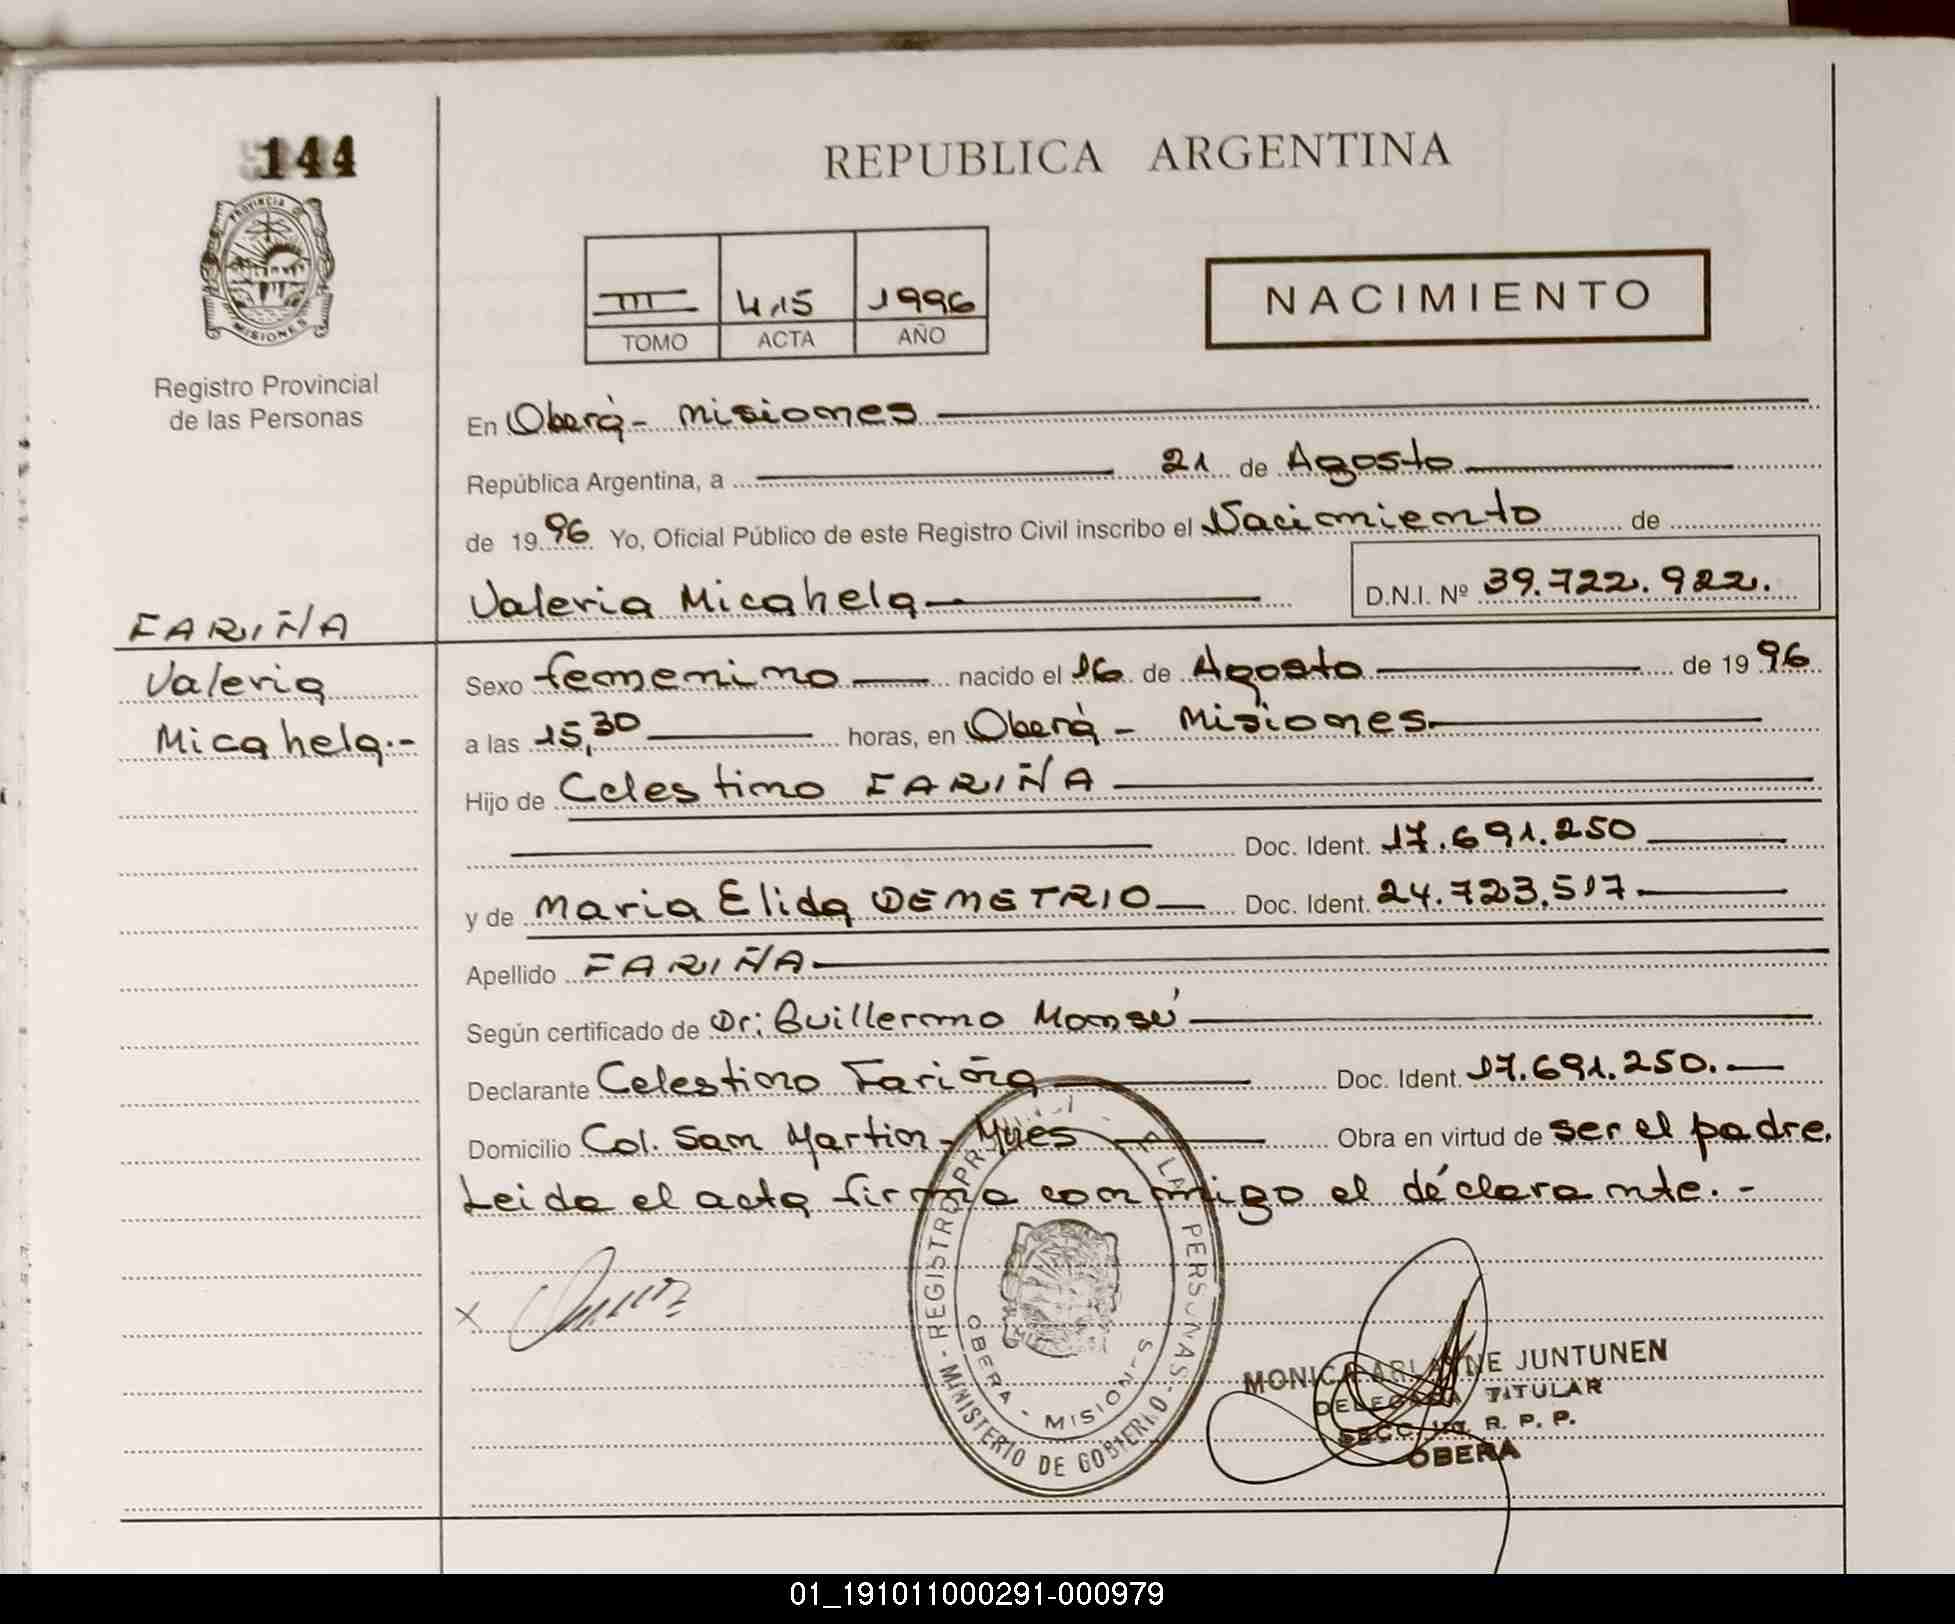 144
REPUBLICA ARGENTINA
PROVINCIA D MISIONES
III 415 1996
TOMO ACTA AÑO
NACIMIENTO
Registro Provincial
de las Personas
En Oberá - Misiones
República Argentina, a 21 de Agosto
de 1996 Yo, Oficial Público de este Registro Civil inscribo el Nacimiento de
Valeria Micahela D.N.I. Nº 39.722.922.
FARIÑA
Valeria
Micahela.-
Sexo femenino nacido el 16 de Agosto de 1996
a las 15,30 horas, en Oberá - Misiones
Hijo de Celestino FARIÑA
Doc. Ident. 17.691.250
y de Maria Elida DEMETRIO Doc. Ident. 24.723.517
Apellido FARIÑA
Según certificado de Dr: Guillermo Monsú
Declarante Celestino Fariña Doc. Ident. 17.691.250.
Domicilio Col. San Martin - Obra en virtud de ser el padre.
Leida el acta firma conmigo el déclarante.-
X
REGISTRO PR LA PERSONAS
MINISTERIO DE GOBIERNO
OBERA - MISIONES
MONICA ARLENE JUNTUNEN
DELEGADA TITULAR
SECC. R. P. P.
OBERA
01_191011000291-000979